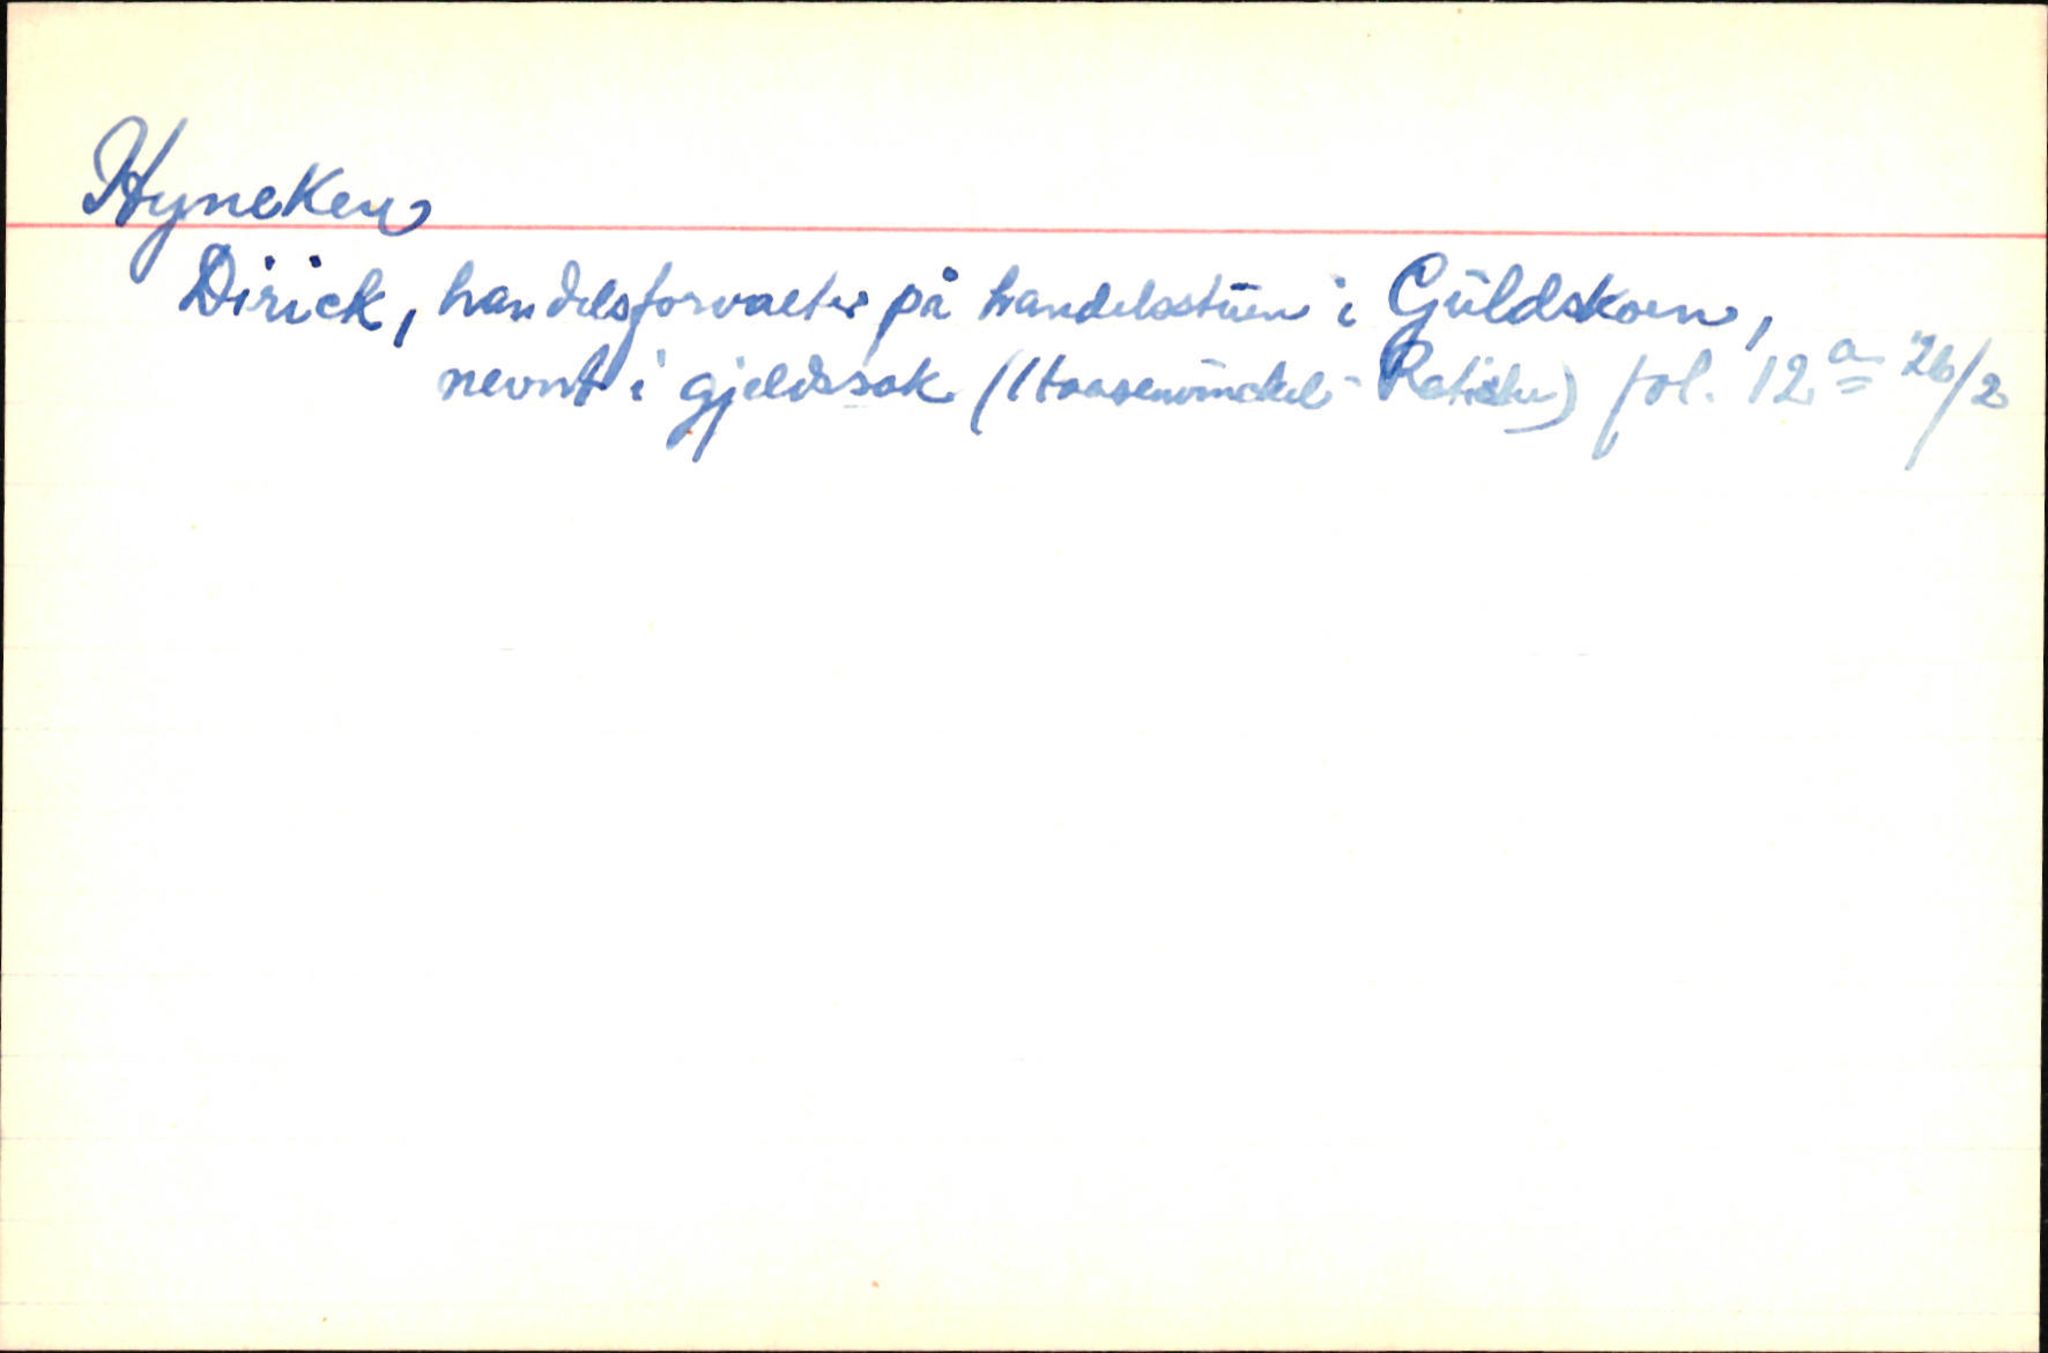 Hyneken
Dirick, handelsforvalter på handelsstuen i Güldskoen,
nevnt i gjeldssak (Haasenwinckel - ) fol. 12a 26/2